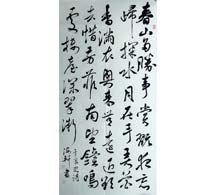 春山多勝事賞翫夜忘
歸掬水月在手弄花
香滿衣興來無遠近欲
去惜芳菲南望鐘鳴
處樓臺深翠微